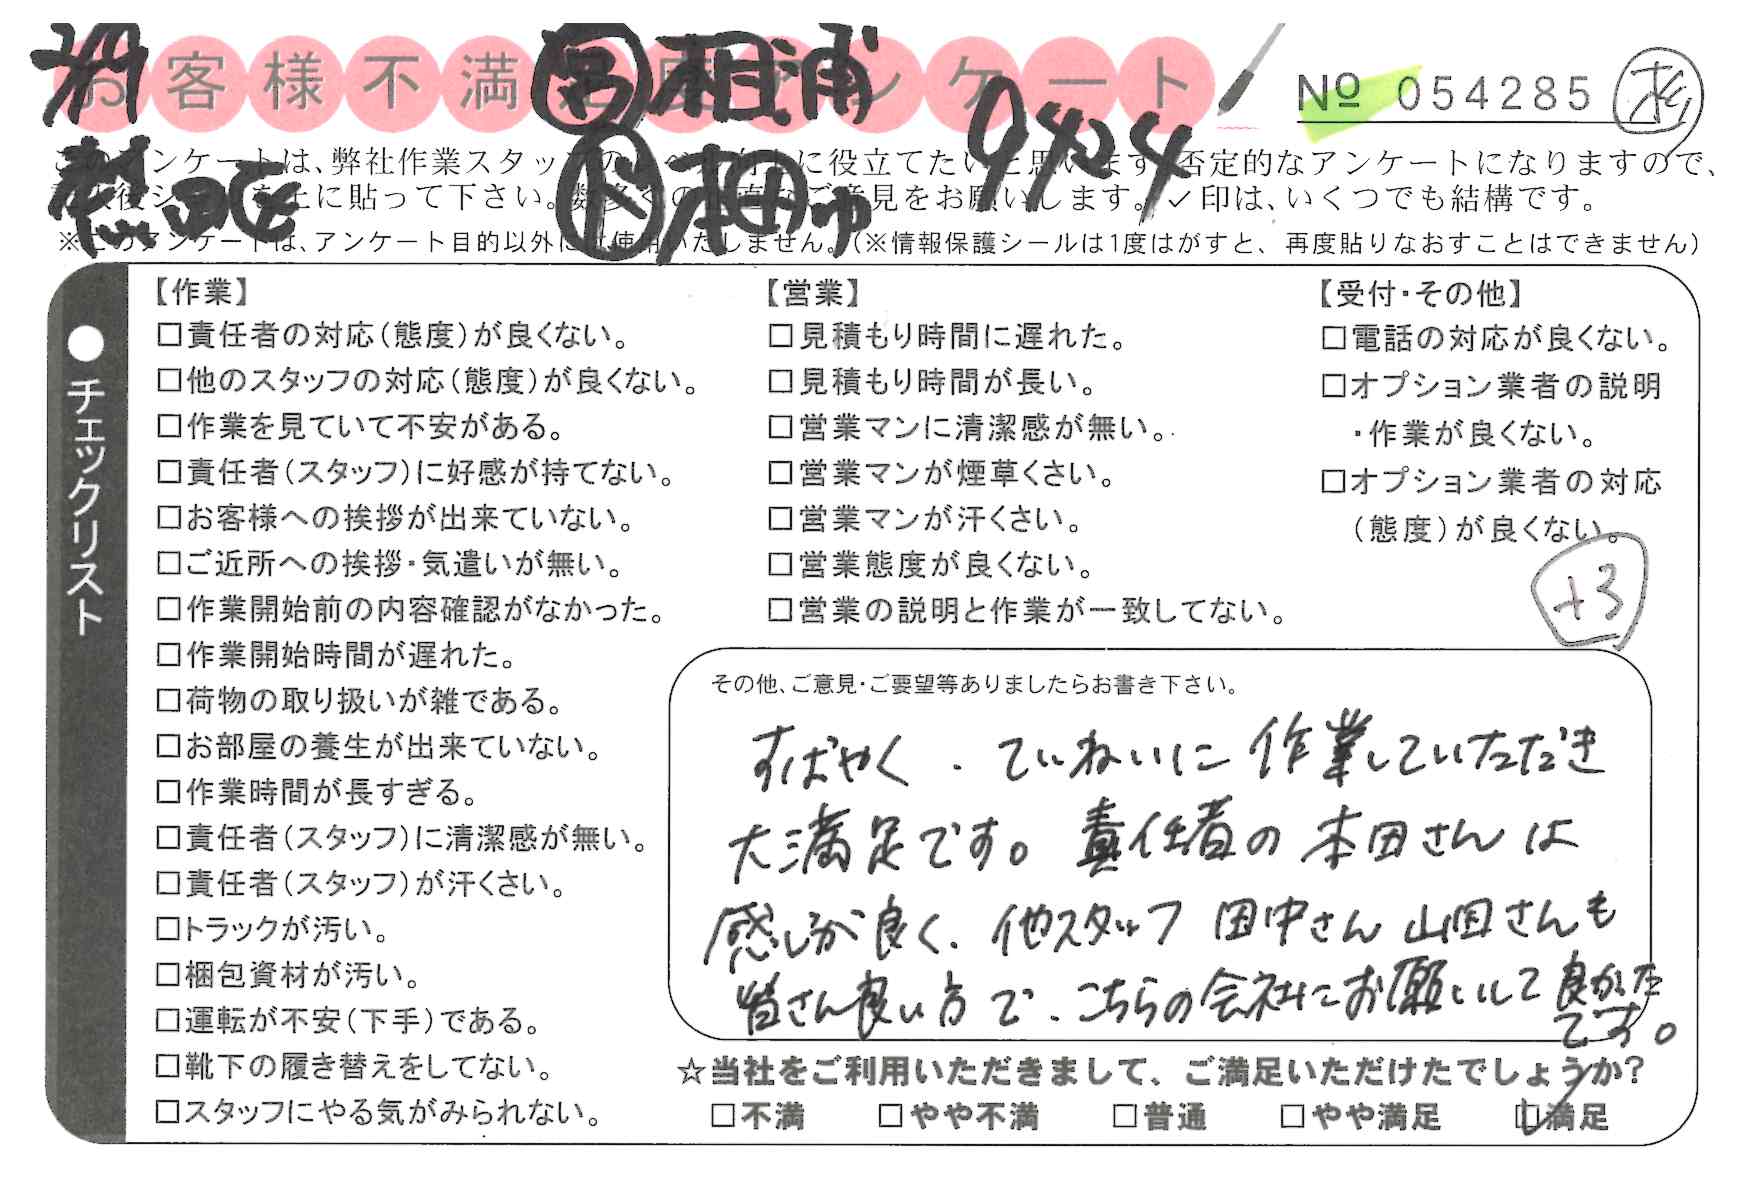 お客様不満足度アンケート
№ 054285
杉
7/29
熊田
営 相浦
作 本田ゆ
9424
このアンケートは、弊社作業スタッフのレベル向上に役立てたいと思います。否定的なアンケートになりますので、
記入後シールを上に貼って下さい。数多くの正直なご意見をお願いします。✓印は、いくつでも結構です。
※このアンケートは、アンケート目的以外には使用いたしません。(※情報保護シールは1度はがすと、再度貼りなおすことはできません)
●チェックリスト
【作業】
□責任者の対応(態度)が良くない。
□他のスタッフの対応(態度)が良くない。
□作業を見ていて不安がある。
□責任者(スタッフ)に好感が持てない。
□お客様への挨拶が出来ていない。
□ご近所への挨拶・気遣いが無い。
□作業開始前の内容確認がなかった。
□作業開始時間が遅れた。
□荷物の取り扱いが雑である。
□お部屋の養生が出来ていない。
□作業時間が長すぎる。
□責任者(スタッフ)に清潔感が無い。
□責任者(スタッフ)が汗くさい。
□トラックが汚い。
□梱包資材が汚い。
□運転が不安(下手)である。
□靴下の履き替えをしてない。
□スタッフにやる気がみられない。
【営業】
□見積もり時間に遅れた。
□見積もり時間が長い。
□営業マンに清潔感が無い。
□営業マンが煙草くさい。
□営業マンが汗くさい。
□営業態度が良くない。
□営業の説明と作業が一致してない。
【受付・その他】
□電話の対応が良くない。
□オプション業者の説明
・作業が良くない。
□オプション業者の対応
(態度)が良くない。
+3
その他、ご意見・ご要望等ありましたらお書き下さい。
すばやく、ていねいに作業していただき
大満足です。責任者の本田さんは
感じが良く、他スタッフ 田中さん 山田さんも
皆さん良い方で、こちらの会社にお願いして良かった
です。
☆当社をご利用いただきまして、ご満足いただけたでしょうか?
□不満 □やや不満 □普通 □やや満足 ☑満足